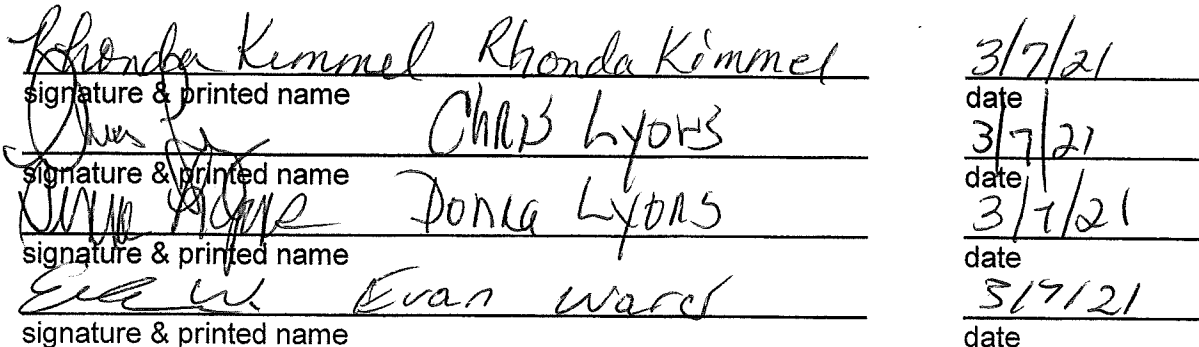 Rhonda Kimmel Rhonda Kimmel 3/7/21
signature & printed name date
Chris Lyons 3/7/21
signature & printed name date
Donna Lyons 3/7/21
signature & printed name date
Evan Ward 3/7/21
signature & printed name date